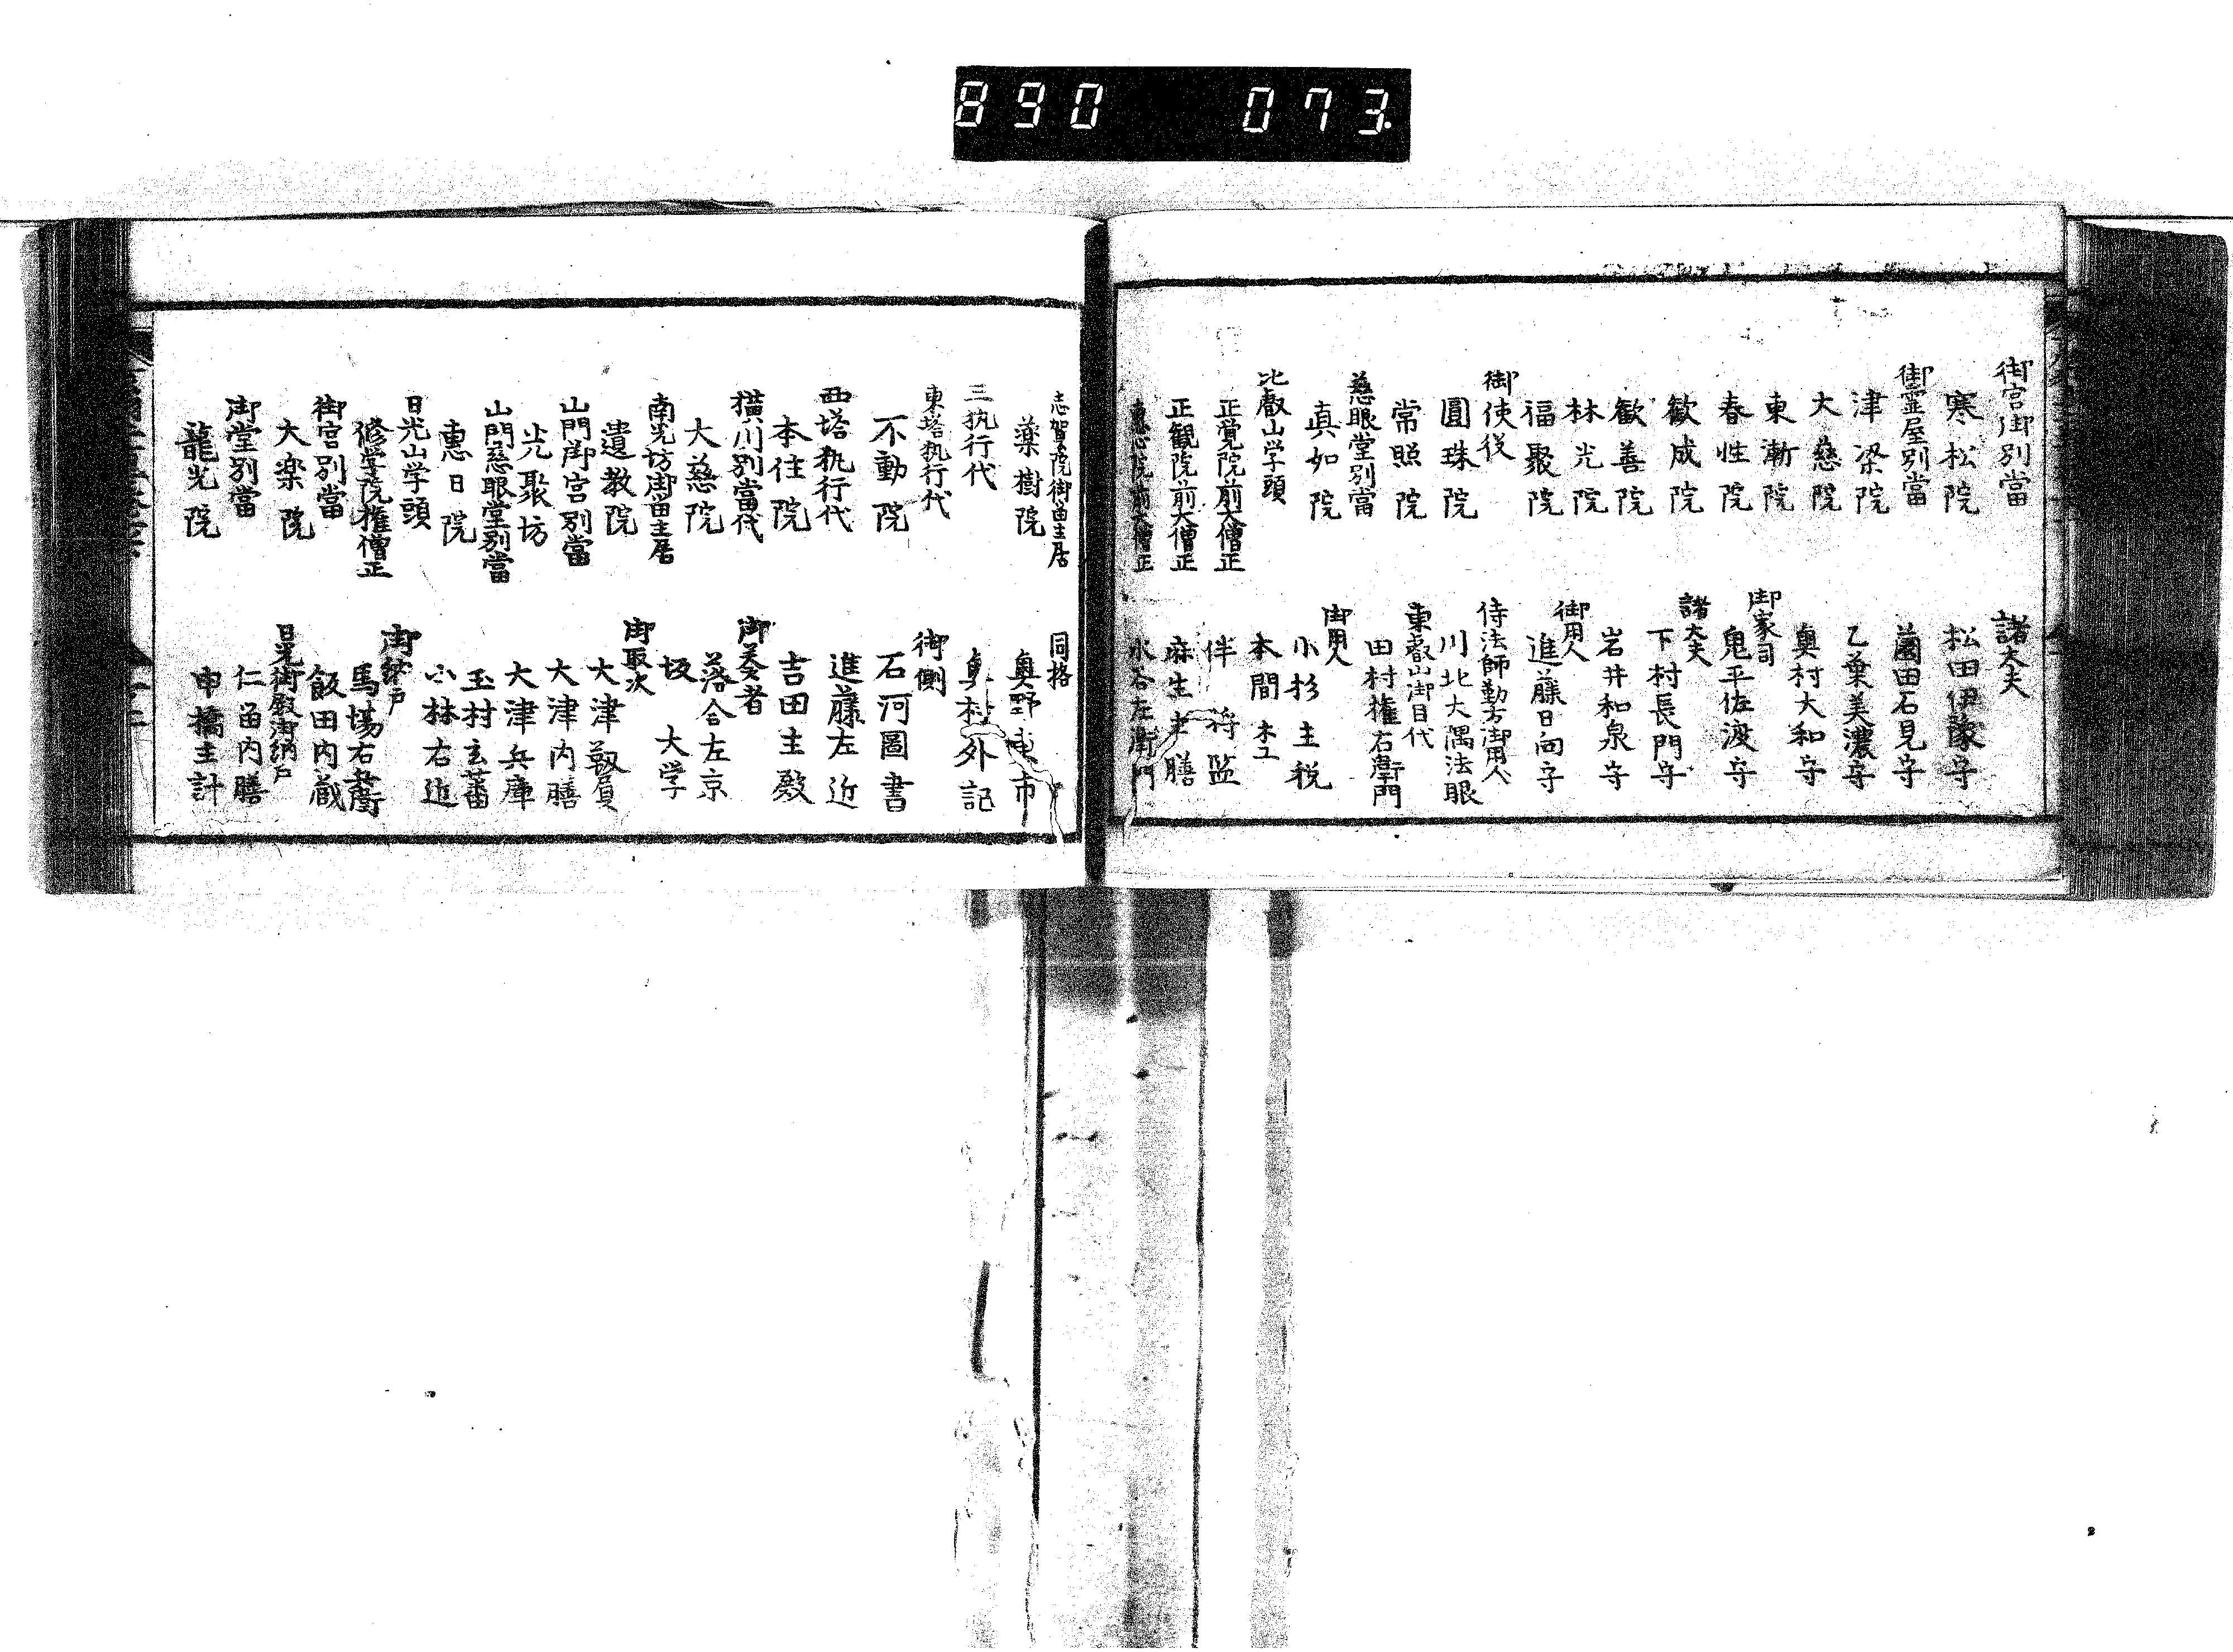 890 073
御宮御別當
寒松院
御霊屋別當
津梁院
大慈院
東漸院
春性院
歓成院
歓善院
林光院
福聚院
御使役
圓珠院
常照院
慈眼堂別當
真如院
比叡山学頭
正覚院前大僧正
正観院前大僧正
恵心院前大僧正
諸大夫
松田伊豫守
薗田石見守
乙葉美濃守
奥村大和守
御家司
鬼平佐渡守
諸大夫
下村長門守
岩井和泉守
御用人
進藤日向守
侍法師勤方御用人
川北大隅法眼
東叡山御目代
田村権右衛門
御用人
小杉主税
本間木工
伴将監
麻生大膳
水谷左衛門
志賀院御留主居
薬樹院
三執行代
東塔執行代
不動院
西塔執行代
本住院
横川別當代
大慈院
南光坊御留主居
遺教院
山門御宮別當
光聚坊
山門慈眼堂別當
恵日院
日光山学頭
修学院権僧正
御宮別當
大楽院
御堂別當
龍光院
同格
奥野東市
奥村外記
御側
石河圖書
進藤左近
吉田主殿
御奏者
落合左京
坂大学
御取次
大津靱負
大津内膳
大津兵庫
玉村玄蕃
小林右近
御納戸
馬場右兵衛
飯田内蔵
日光御殿御納戸
仁函内膳
中橋主計